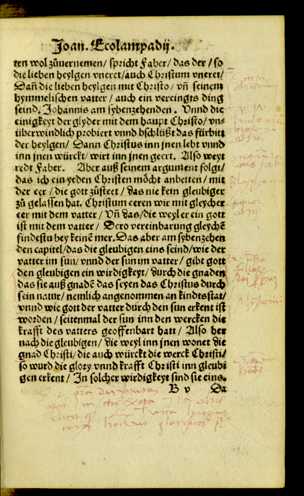 Joan. Ecolampadij.
ten wol zůuernemen / spricht Faber / das der / so
die lieben heylgen vneret / auch Christum vneret /
Dañ die lieben heylgen mit Christo / vñ seinem
hymmelischen vatter / auch ein vereingts ding
seind. Johannis am sybenzehenden. Vnnd die
einigkeyt der glyder mit dem haupt Christo / vns
überwindlich probiert vnnd bschlüßt das fürbitt
der heylgen / Dann Christus inn jnen lebt vnnd
inn jnen würckt / wirt inn jnen geert. Also weyt
redt Faber. Aber auß seinem argument folgt /
das ich ein yeden Christen möcht anbetten / mit
der eer / die gott zůsteet / das nie kein gleubiger
zů gelassen hat. Christum eeren wir mit gleycher
eer mit dem vatter / Vñ das / die weyl er ein gott
ist mit dem vatter / Dero vereinbarung gleychē
findestu bey keinē mer. Das aber am sybenzehen
den capitel / das die gleubigen eins seind / wie der
vatter im sun / vnnd der sun im vatter / gibt gott
den gleubigen ein wirdigkeyt / durch die gnaden
das sie auß gnadē das seyen das Christus durch
sein natur / nemlich angenommen an kindes stat /
vnnd wie gott der vatter durch den sun erkent ist
worden / seitenmal der sun inn den wercken die
krafft des vatters geoffenbart hatt / Also her
nach die gleubigen / die weyl inn jnen wonet die
gnad Christi / die auch würckt die werck Christi /
so wurd die glory vnnd krafft Christi inn gleubi
gen erkent / In solcher wirdigkeyt sind sie eins.
B v Da